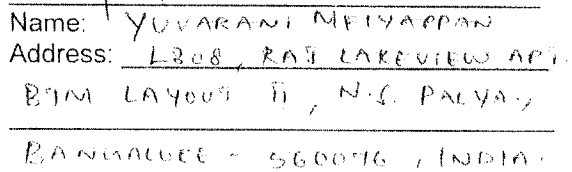 Name: YUVARANI MEIYAPPAN
Address: L308, RAJ LAKEVIEW APT.
BTM LAYOUT II, N.S. PALYA,
BANGALORE - 560076, INDIA.